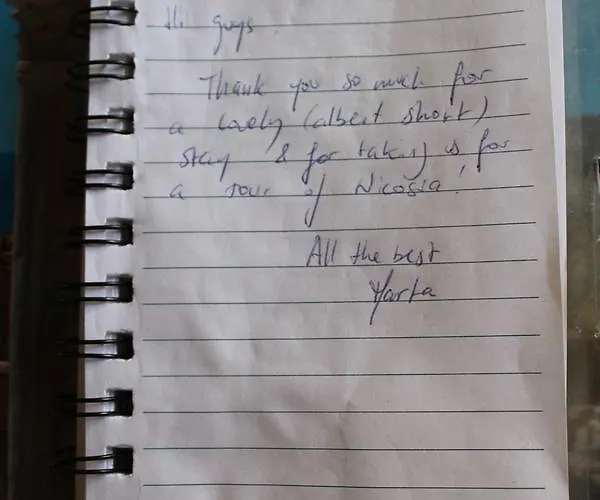 Hi guys
Thank you so much for
a lovely (albeit short)
stay & for taking us for
a tour of Nicosia!
All the best
Marta